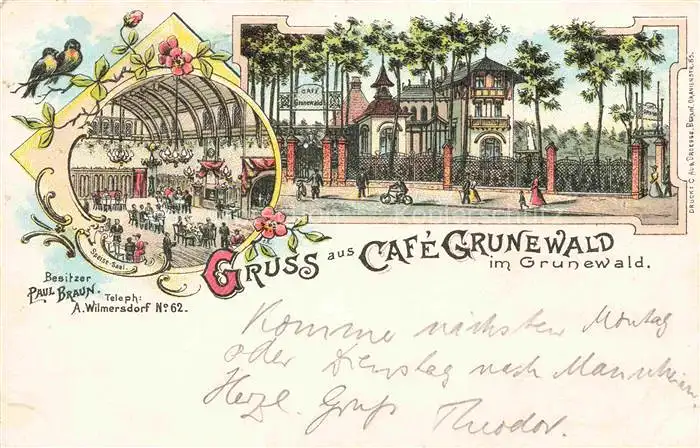 CAFÉ
Grunewald
Speise-Saal.
DRUCK C. AUG. GRIESSE, BERLIN, ORANIENSTR. 65.
GRUSS aus CAFÉ GRUNEWALD
im Grunewald.
Besitzer
PAUL BRAUN.
Teleph:
A. Wilmersdorf No 62.
Komme nächsten Montag
oder Dienstag nach Mannheim.
Herzl. Gruß Theodor.